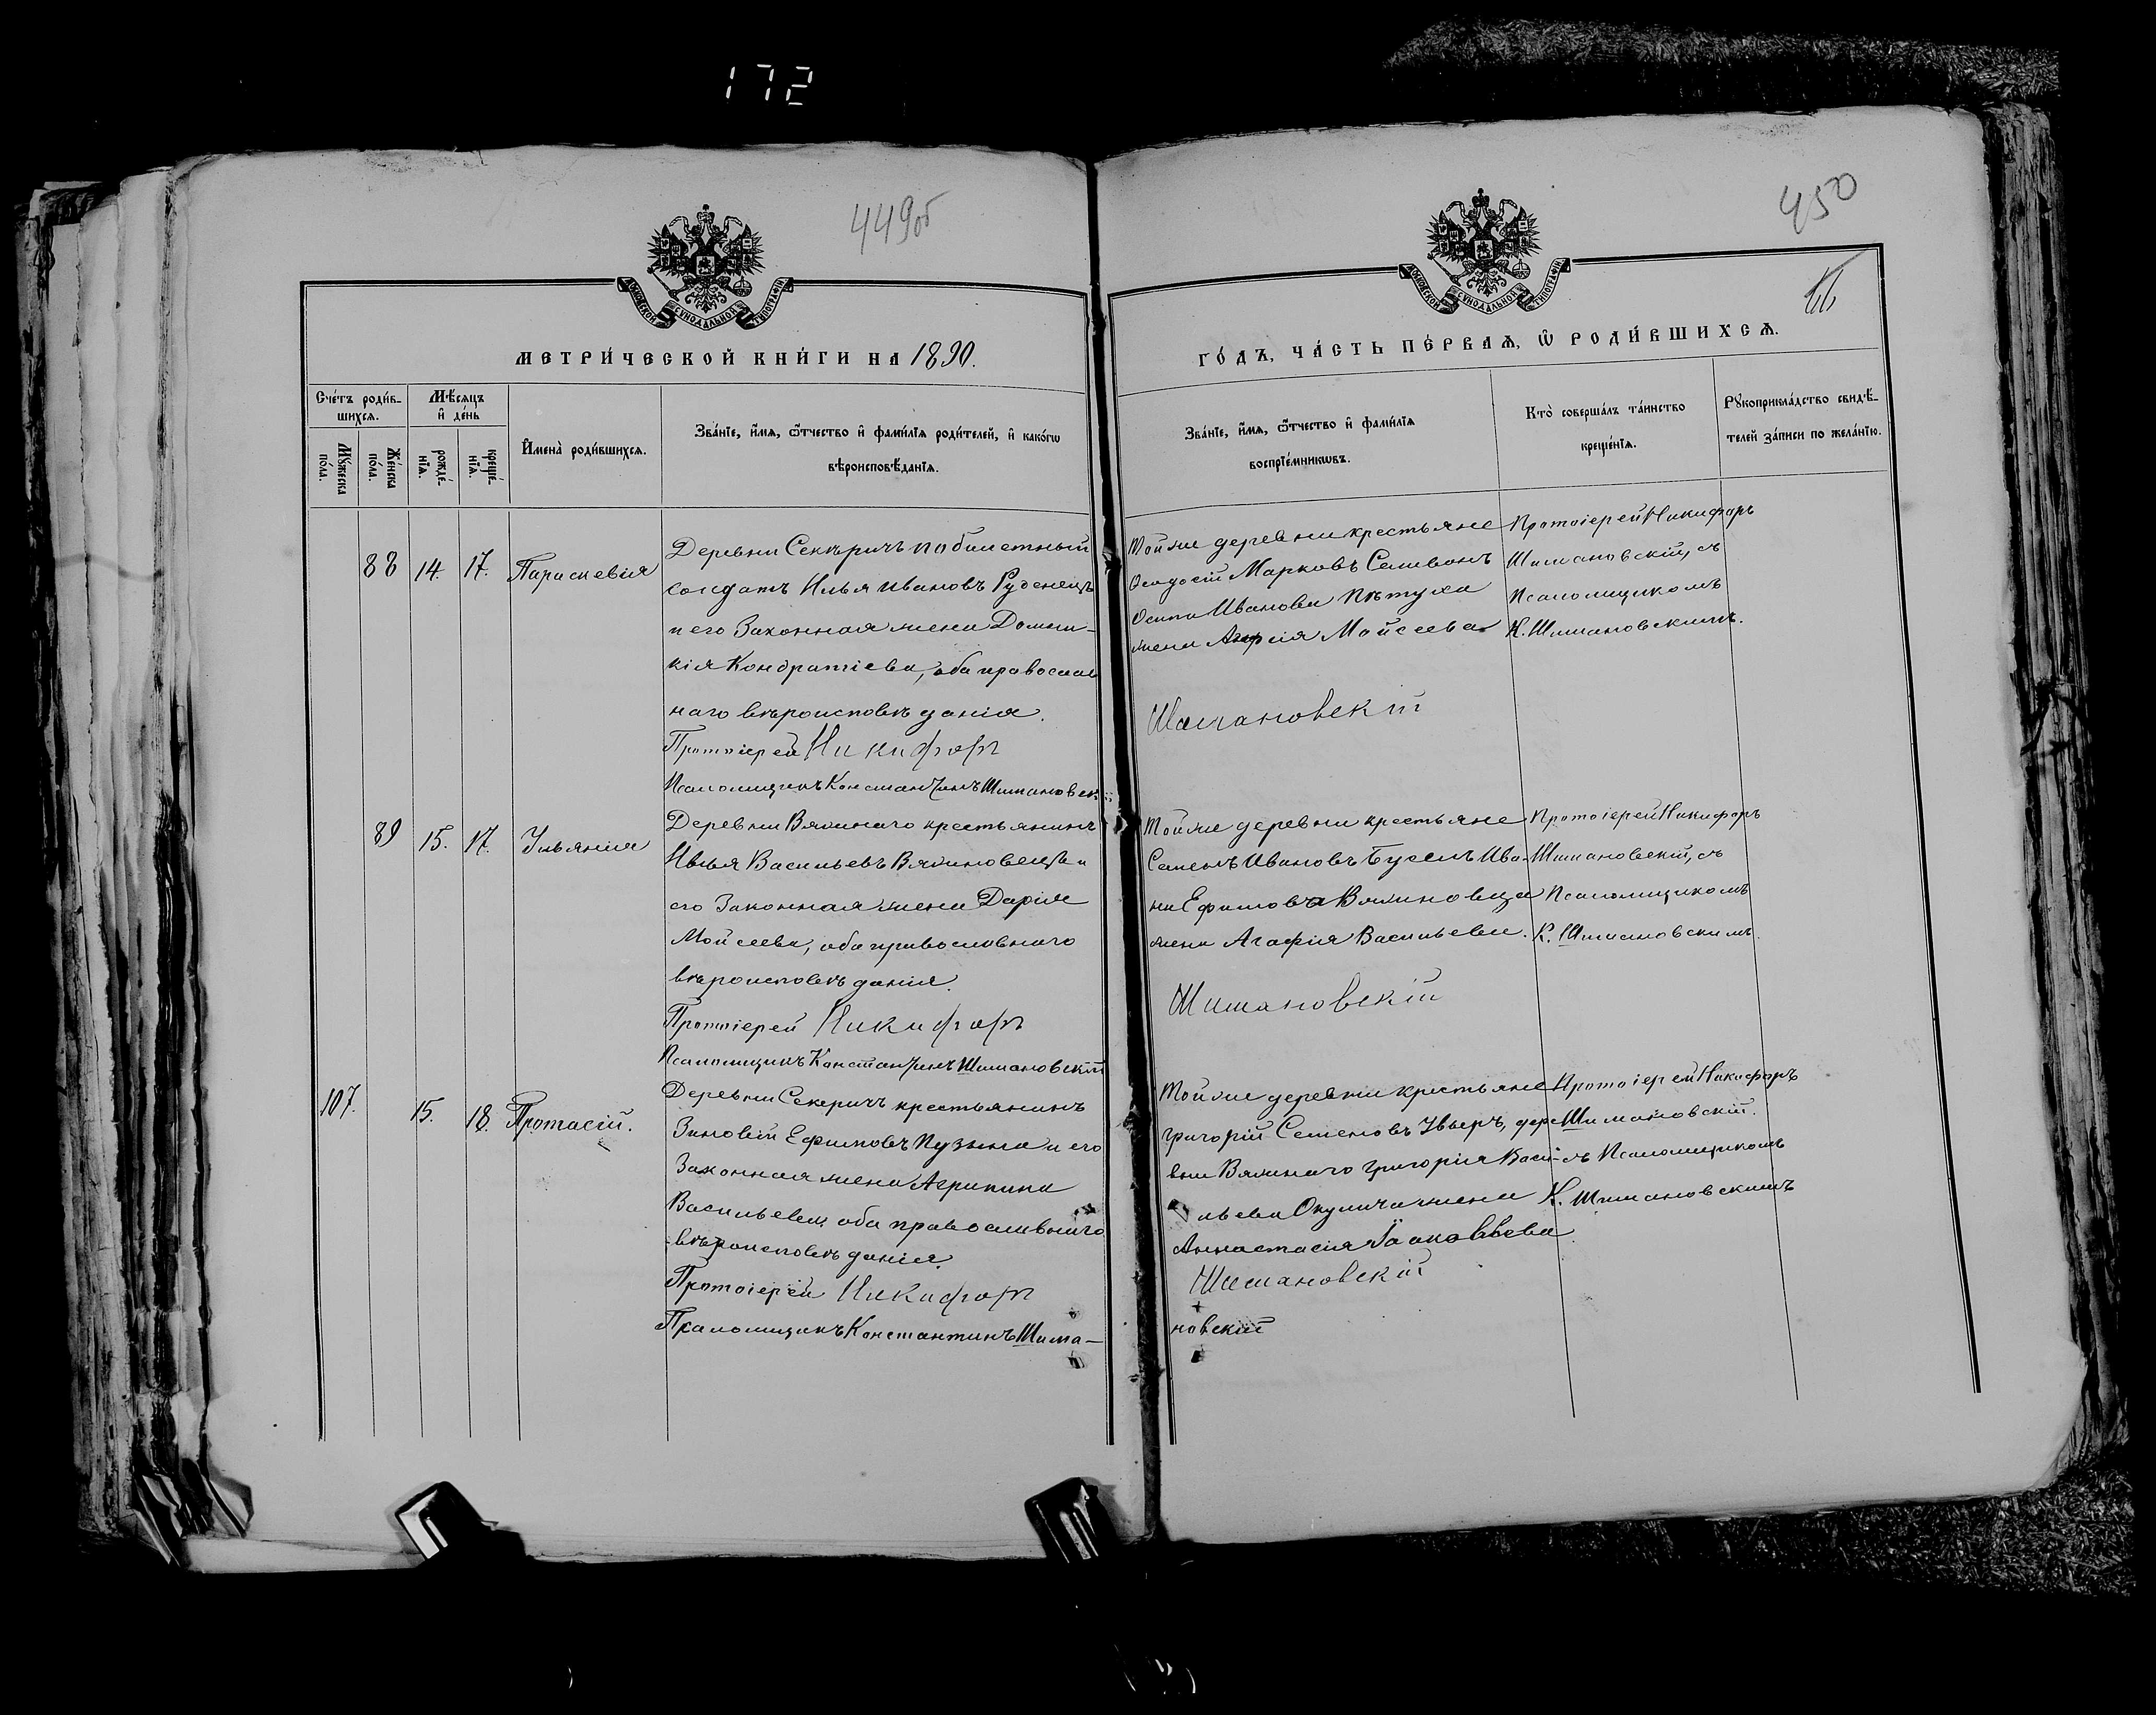 172
449об
450
МОСКОВСКОЙ СѴНОДАЛЬНОЙ ТИПОГРАФІИ
МОСКОВСКОЙ СѴНОДАЛЬНОЙ ТИПОГРАФІИ
МЕТРИ́ЧЕСКОЙ КНИ́ГИ НА 1890.
ГО́ДЪ, ЧА́СТЬ ПЕ́РВАѦ, Ѡ҆ РОДИ́ВШИХСѦ.
Сче́тъ роди́в-
шихсѧ.
Мѣ́сѧцъ
и҆ де́нь
Мꙋ́жеска
по́ла.
Же́нска
по́ла.
рожде́-
нїѧ.
креще́-
нїѧ.
И҆мена̀ роди́вшихсѧ.
Зва́нїе, и҆́мѧ, ѻ҆́тчество и҆ фами́лїѧ роди́телей, и҆ како́гѡ
вѣроисповѣ́данїѧ.
Зва́нїе, и҆́мѧ, ѻ҆́тчество и҆ фами́лїѧ
воспрїе́мникѡвъ.
Кто̀ соверша́лъ та́инство
креще́нїѧ.
Рꙋкоприкла́дство свидѣ́-
телей за́писи по жела́нїю.
88 14. 17. Параскевія
Деревни Секеричъ побилетный
солдатъ Илья Ивановъ Руденецъ
и его Законная жена Доми-
кія Кондратіева, оба православ
наго вѣроисповѣданія.
Протоіерей Никифоръ
Псаломщикъ Константинъ Шимановскій
Тойже деревни крестьяне
Феодосій Марковъ Селивонъ
Осипа Иванова Пѣтуха
жена Моисеева
Шимановскій
Протоіерей Никифоръ
Шимановскій, съ
Псаломщикомъ
К. Шимановскимъ.
89 15. 17. Ульянія
Деревни Вяжинаго крестьянинъ
Илья Васильевъ Вяжиновецъ и
его Законная жена Дарія
Моисеева, оба православнаго
вѣроисповѣданія.
Протоіерей Никифоръ
Псаломщикъ Константинъ Шимановскій
Тойже деревни крестьяне
Семенъ Ивановъ Бусель Ива-
на Ефимова Вяжиновца
жена Агафія Васильева.
Шимановскій
Протоіерей Никифоръ
Шимановскій, съ
Псаломщикомъ
К. Шимановскимъ.
107. 15. 18. Протасій.
Деревни Секеричъ крестьянинъ
Зиновій Ефимовъ Пузына и его
Законная жена Агрипина
Васильева, оба православнаго
вѣроисповѣданія.
Протоіерей Никифоръ
Псаломщикъ Константинъ Шима-
Тойже деревни крестьяне
Григорій Семеновъ дере
вни Вяжинаго Григорія Васи-
льева Окулича жена
Анастасія Іаковлева
Шимановскій
новскій
Протоіерей Никифоръ
Шимановскій.
съ Псаломщикомъ
К. Шимановскимъ